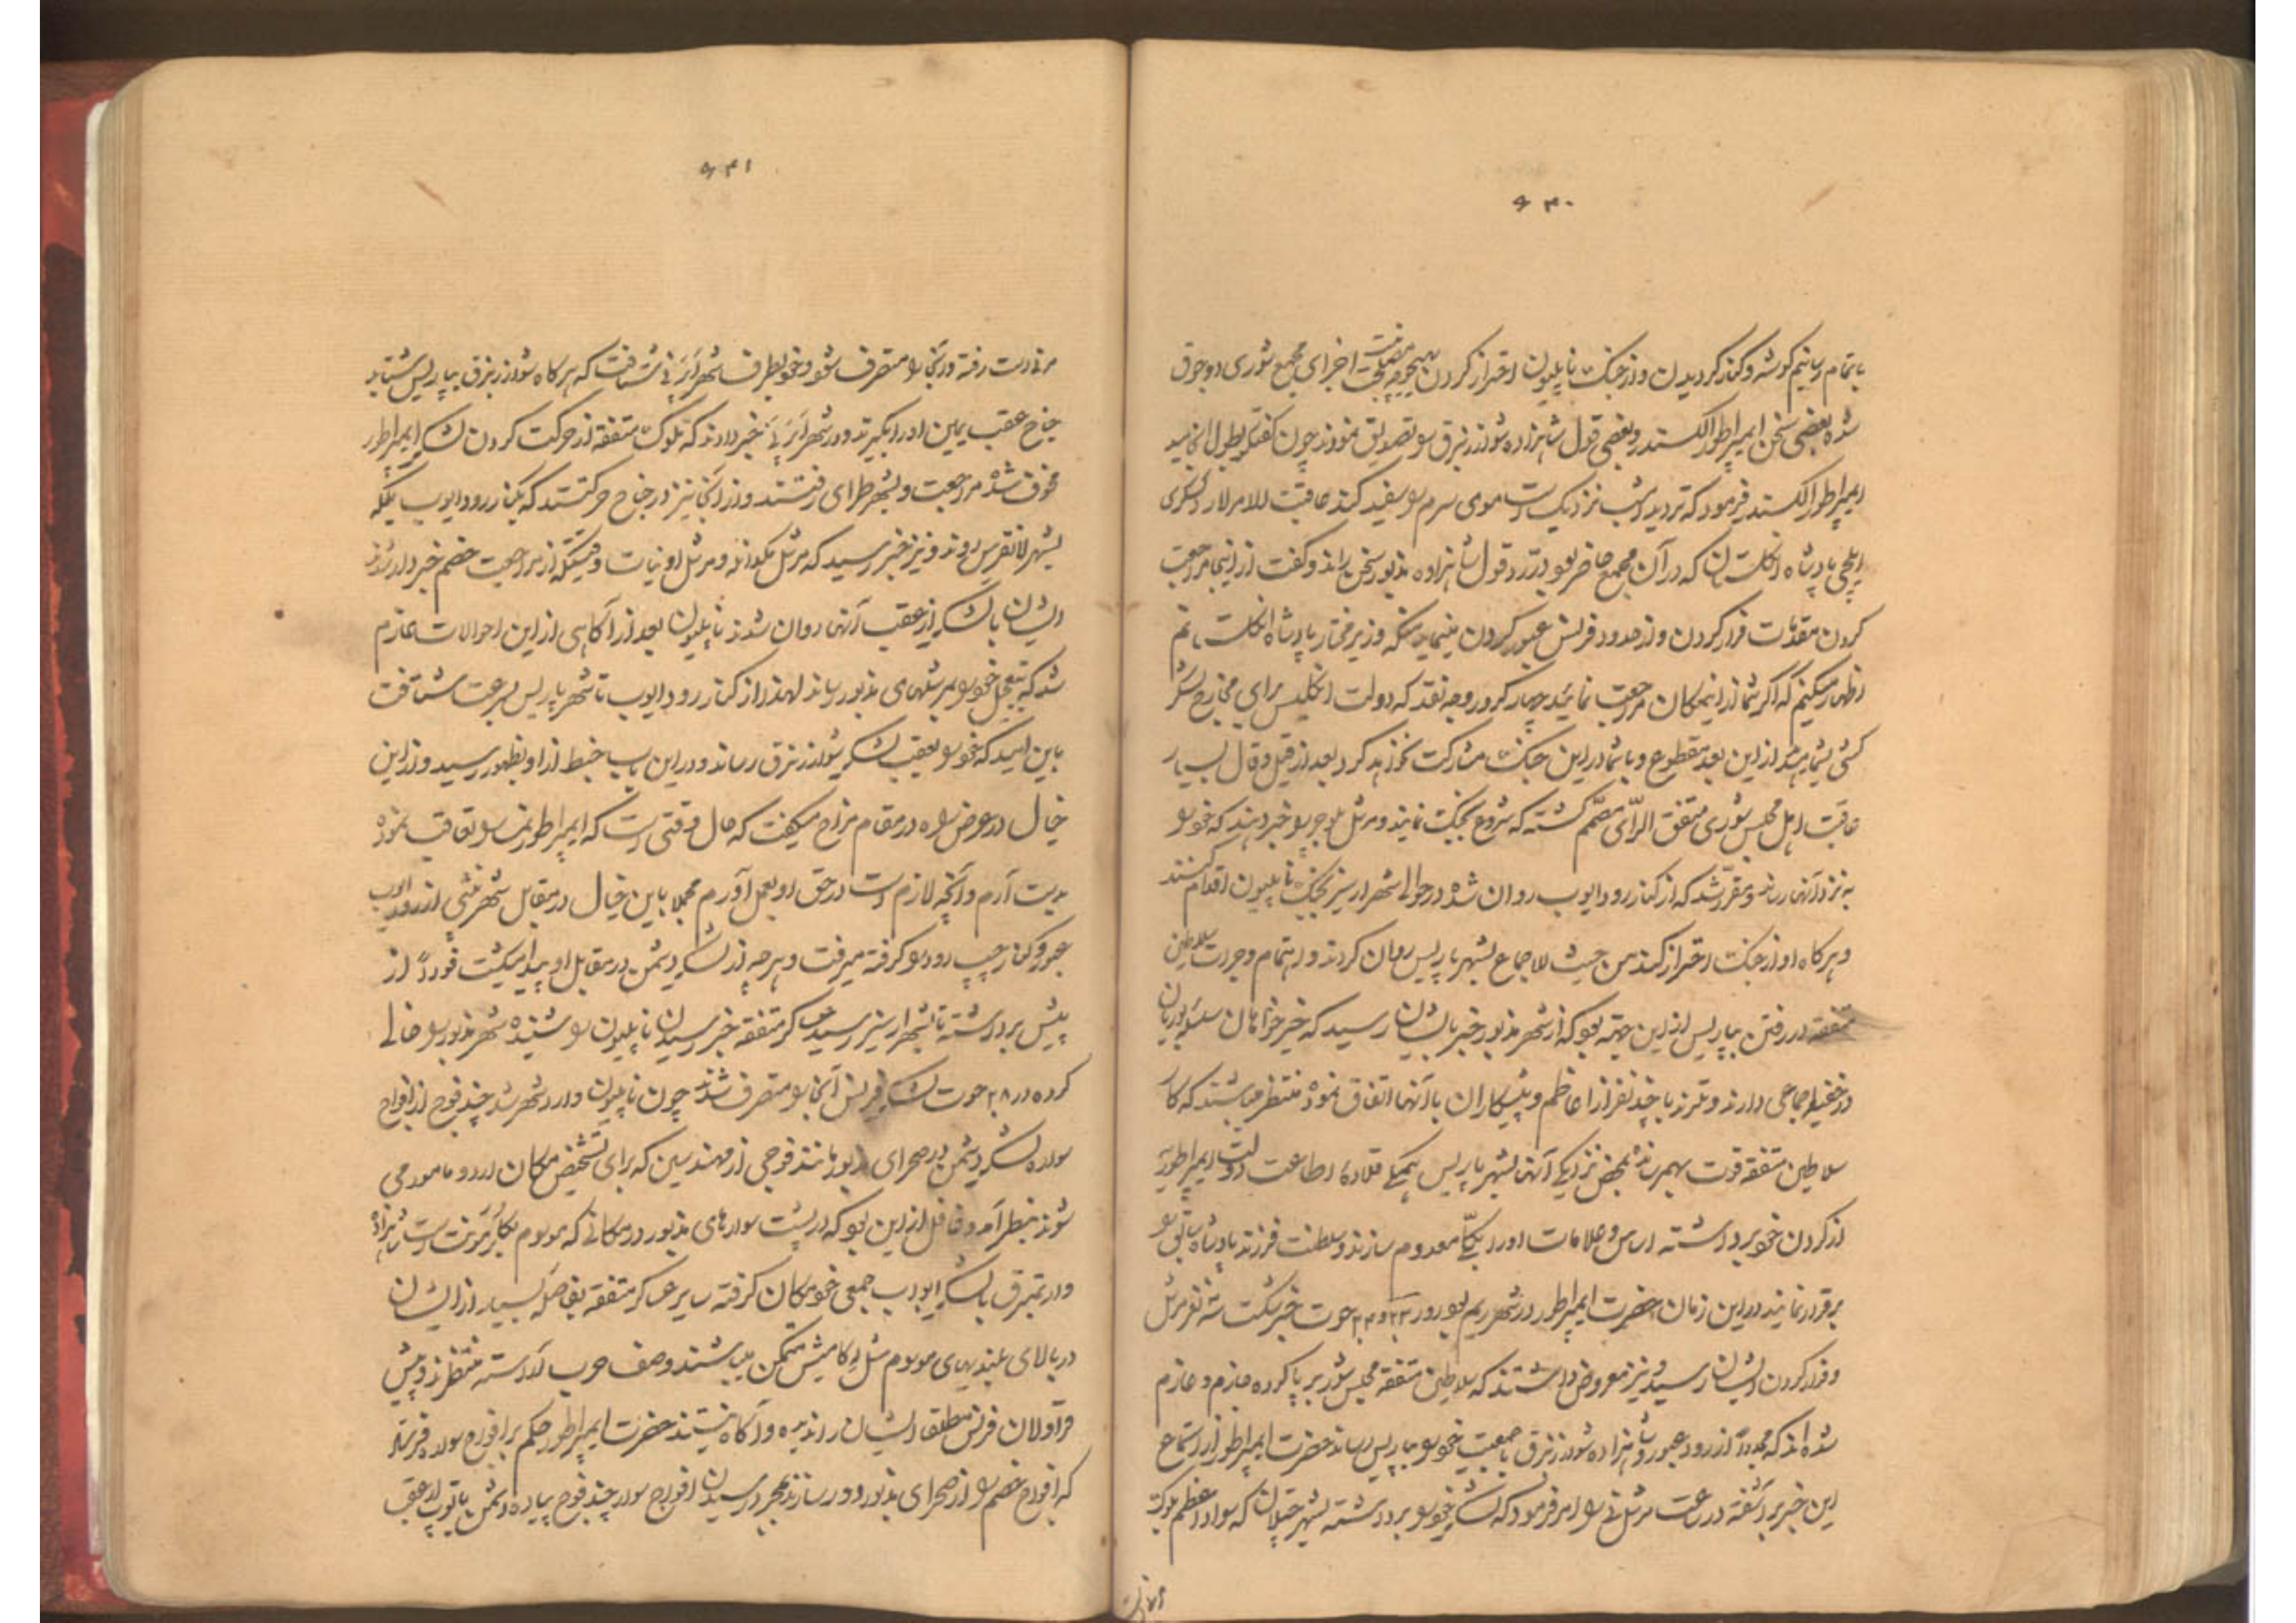 ۶۳۰
باتمام رسانیم گوشه و کنار گردیدن و از جنگ ناپلیون احتراز کردن هیچوجه مصلحت نیست اجزای مجمع شوری دو جوق
شده بعضی سخن ایمپراطور الکسندر و بعضی قول شاهزاده شوارزنبرق را تصدیق نمودند چون گفتگو بطول انجامید
ایمپراطور الکسندر فرمود که تردید امشب نزدیک است موی سرم را سفید کند عاقبت الامر لارد
ایلچی پادشاه انگلستان که در آن مجمع حاضر بود در رد قول شاهزاده مذبور سخن رانده و گفت از اینجا مراجعت
کردن مقدمات فرار کردن و از حدود فرانس عبور کردن مینماید منکه وزیر مختار پادشاه انگلستانم
اظهار میکنم که اگر شما از اینمکان مراجعت نمائید چهار کرور وجه نقد که دولت انگلیس برای مخارج لشکر
کشی بشما میدهد از این بعد مقطوع و با شما در این جنگ مشارکت نخواهد کرد بعد از قیل و قال بسیار
عاقبت اهل مجلس شوری متفق الرّای مصمّم گشته که شروع بجنگ نمایند و مرشل بلوچر را خبر دهند که خود را
به نزد آنها رساند و مقرّر شد که از کنار رود ایوب روان شده در حوالی شهر ارسیز بجنگ ناپلیون اقدام کنند
و هر گاه او از جنگ احتراز کند من حیث الاجماع بشهر پاریس روان گردند و اهتمام وجرات سلاطین
متفقه در رفتن بپاریس از این جهة بود که از شهر مذبور خبر بایشان رسید که خیر خواهان سلسله بوربان
در خفیه اجماعی دارند و تلرند با چند نفر از اعاظم و پیشکاران با آنها اتفاق نموده منتظر میباشند که کار
سلاطین متفقه قوت بهمرسانده بمحض نزدیکی آنها بشهر پاریس همگی قلاده اطاعت دولت ایمپراطور را
از گردن خود برداشته اساس و علامات او را بکلّی معدوم سازند و سلطنت فرزند پادشاه سابق را
برقرار نمایند در این زمان حضرت ایمپراطور در شهر ریم بود و در ۲۳ و ۲۴ حوت خبر شکست سه نفر مرشل
و فرار کردن ایشان رسید و نیز معروض داشتند که سلاطین متفقه مجلس شوری برپا کرده جازم و عازم
شده‌اند که مجدداً از رود عبور و شاهزاده شوارزنبرق با جمعیت خود را بپاریس رساند حضرت ایمپراطور از استماع
این خبر برآشفته در ساعت مرشل نی را امر فرمود که لشکر خود را برداشته بشهر چالان که سواد اعظم بلوک
۶۳۱
مرن است رفته و آنجا را متصرف شود و خود بطرف شهر اپرنی شتافت که هر گاه شوارزنبرق بپاریس شتابد
جناح عقب یمین او را بگیرند و در شهر اپرنی خبر دادند که ملوک متفقه از حرکت کردن لشکر ایمپراطور
مخوف شده مراجعت و بشهر طرای رفتند و از آنجا نیز در جناح حرکتند که بکنار رود ایوب بلکه
بشهر لانقرس روند و نیز خبر رسید که مرشل مکدانه و مرشل اودنیات وقتیکه از مراجعت خصم خبردار شدند
ایشان با لشکر از عقب آنها روان شدند ناپلیون بعد از آگاهی از این احوالات عازم
شد که بتعجیل خود را بمرشلهای مذبور رساند لهذا از کنار رود ایوب تا شهر پاریس بسرعت شتافت
باین امید که خود را بعقب لشکر شوارزنبرق رساند و در این باب خبط از او بظهور رسید و از این
خیال در عرض راه در مقام مزاح میگفت که حال وقتی است که ایمپراطور نمسا را تعاقب نموده
بدست آرم و آنچه لازم است در حق او بعمل آورم مجملا باین خیال در مقابل شهر پلنشی از رود ایوب
عبور و کنار چپ رود را گرفته میرفت و هر چه از لشکر دشمن در مقابل او پیدا میگشت فوراً از
پیش برداشته تا بشهر ارسیز رسید عساکر متفقه خبر رسیدن ناپلیون را شنیده شهر مذبور را خالی
کرده در ۲۸ حوت لشکر فرانس آنجا را متصرف شدند چون ناپلیون وارد شهر شد چند فوج از افواج
سواره لشکر دشمن در صحرای مذبور مانند فوجی از مهندسین که برای تشخیص مکان اردو مامور می
شوند بنظر آمد و غافل از این بود که در پشت سوارهای مذبور در مکانی که موسوم است شاهزاده
وارتمبرق با لشکر ایوب جمعی خود مکان گرفته سایر عساکر متفقه بفاصله بسیار از ایشان
در بالای بلندیهای موسوم متمکن میباشند و صف حرب آراسته منتظرند و پیش
قراولان فرانس مطلقا ایشان را ندیده و آگاه نیستند حضرت ایمپراطور حکم بر افواج سواره فرستاد
که افواج خصم را از صحرای مذبور دور سازند بمجرد رسیدن افواج سواره چند فوج پیاده دشمن با توپ از عقب